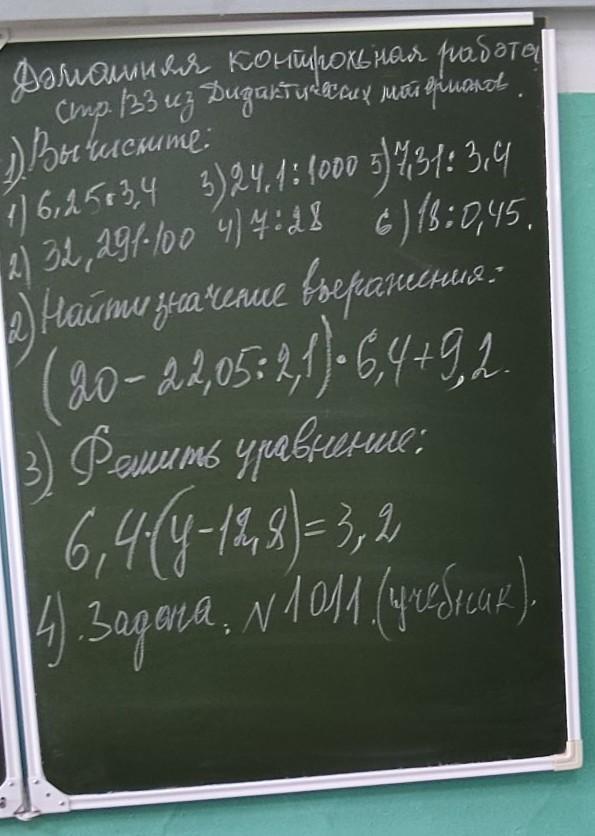 Домашняя контрольная работа
стр. 133 из Дидактических материалов.
1) Вычислите:
1) 6,25·3,4 3) 24,1:1000 5) 7,31:3,4
2) 32,291·100 4) 7:28 6) 18:0,45.
2) Найти значение выражения:
(20-22,05:2,1)·6,4+9,2.
3) Решить уравнение:
6,4·(y-12,8)=3,2
4). Задача: N 1011. (учебник).